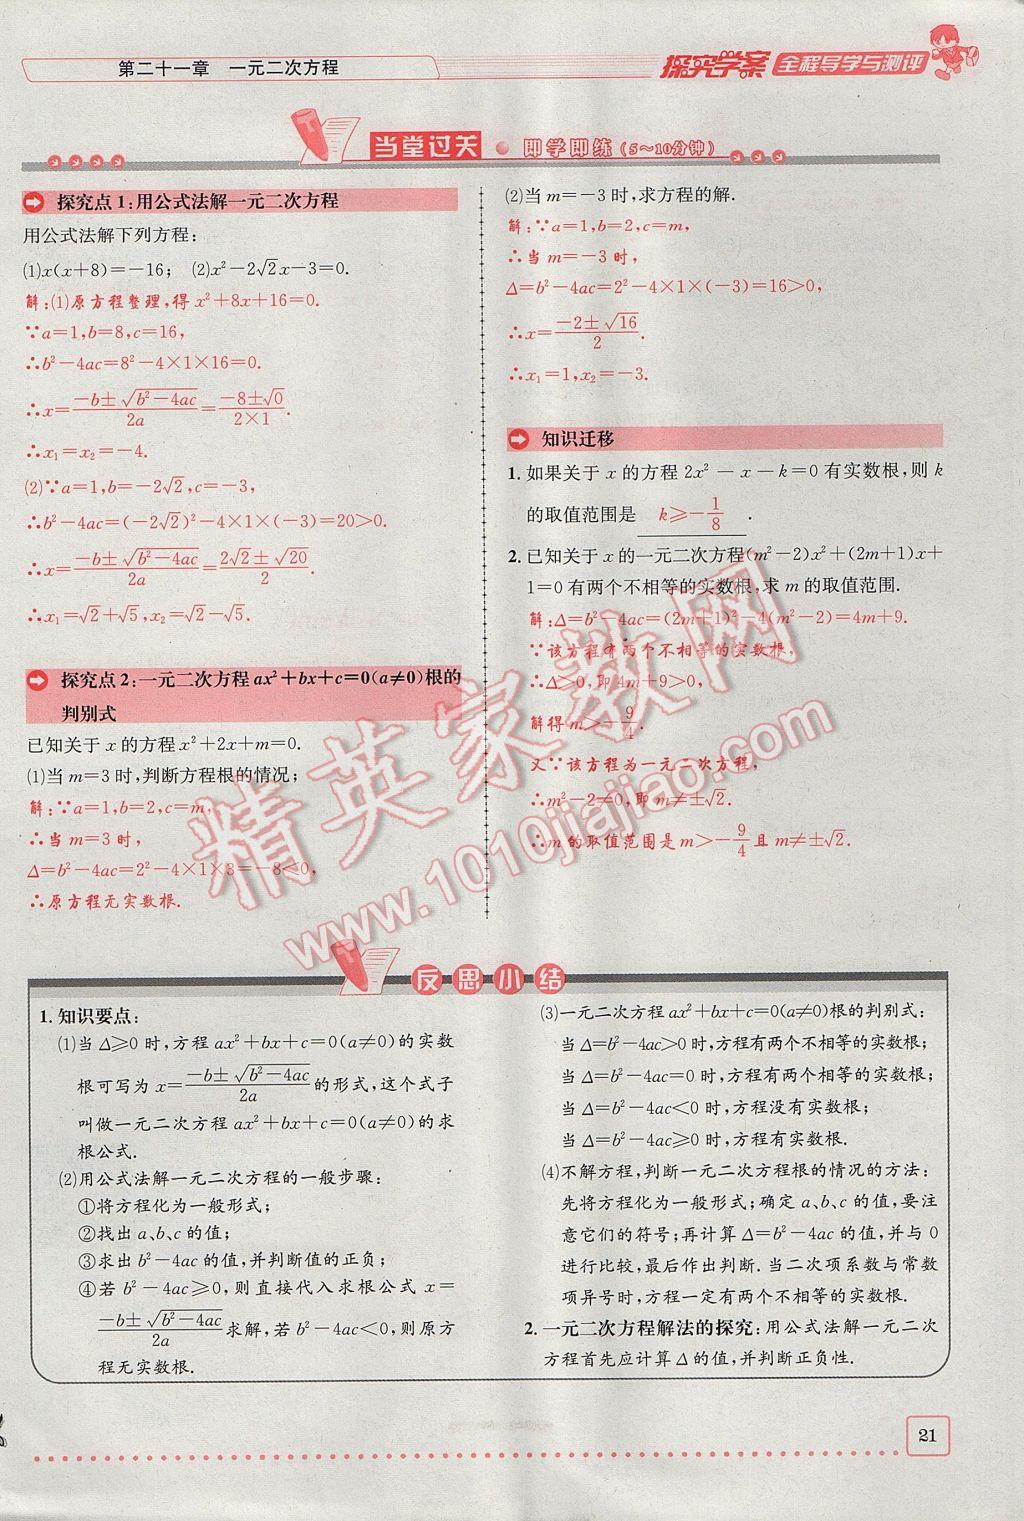 第二十一章　一元二次方程
探究学案 全程导学与测评
当堂过关·即学即练(5～10分钟)
探究点1:用公式法解一元二次方程
用公式法解下列方程:
(1)x(x+8)=-16; (2)x²-2√2x-3=0.
解:(1)原方程整理,得x²+8x+16=0.
∵a=1,b=8,c=16,
∴b²-4ac=8²-4×1×16=0.
∴x=(-b±√(b²-4ac))/(2a)=(-8±√0)/(2×1).
∴x₁=x₂=-4.
(2)∵a=1,b=-2√2,c=-3,
∴b²-4ac=(-2√2)²-4×1×(-3)=20>0.
∴x=(-b±√(b²-4ac))/(2a)=(2√2±√20)/2.
∴x₁=√2+√5,x₂=√2-√5.
探究点2:一元二次方程ax²+bx+c=0(a≠0)根的
判别式
已知关于x的方程x²+2x+m=0.
(1)当m=3时,判断方程根的情况;
解:∵a=1,b=2,c=m,
∴当m=3时,
Δ=b²-4ac=2²-4×1×3=-8<0,
∴原方程无实数根.
(2)当m=-3时,求方程的解.
解:∵a=1,b=2,c=m,
∴当m=-3时,
Δ=b²-4ac=2²-4×1×(-3)=16>0,
∴x=(-2±√16)/2.
∴x₁=1,x₂=-3.
知识迁移
1. 如果关于x的方程2x²-x-k=0有实数根,则k
的取值范围是 k≥-1/8 .
2. 已知关于x的一元二次方程(m²-2)x²+(2m+1)x+
1=0有两个不相等的实数根,求m的取值范围.
解:Δ=b²-4ac=(2m+1)²-4(m²-2)=4m+9.
∵该方程有两个不相等的实数根,
∴Δ>0,即4m+9>0,
解得m>-9/4.
又∵该方程为一元二次方程,
∴m²-2≠0,即m≠±√2.
∴m的取值范围是m>-9/4且m≠±√2.
精英家教网
www.1010jiajiao.com
反思小结
1. 知识要点:
(1)当Δ≥0时,方程ax²+bx+c=0(a≠0)的实数
根可写为x=(-b±√(b²-4ac))/(2a)的形式,这个式子
叫做一元二次方程ax²+bx+c=0(a≠0)的求
根公式.
(2)用公式法解一元二次方程的一般步骤:
①将方程化为一般形式;
②找出a、b、c的值;
③求出b²-4ac的值,并判断值的正负;
④若b²-4ac≥0,则直接代入求根公式x=
(-b±√(b²-4ac))/(2a)求解,若b²-4ac<0,则原方
程无实数根.
(3)一元二次方程ax²+bx+c=0(a≠0)根的判别式:
当Δ=b²-4ac>0时,方程有两个不相等的实数根;
当Δ=b²-4ac=0时,方程有两个相等的实数根;
当Δ=b²-4ac<0时,方程没有实数根;
当Δ=b²-4ac≥0时,方程有实数根.
(4)不解方程,判断一元二次方程根的情况的方法:
先将方程化为一般形式;确定a、b、c的值,要注
意它们的符号;再计算Δ=b²-4ac的值,并与0
进行比较,最后作出判断.当二次项系数与常数
项异号时,方程一定有两个不相等的实数根.
2. 一元二次方程解法的探究:用公式法解一元二次
方程首先应计算Δ的值,并判断正负性.
21